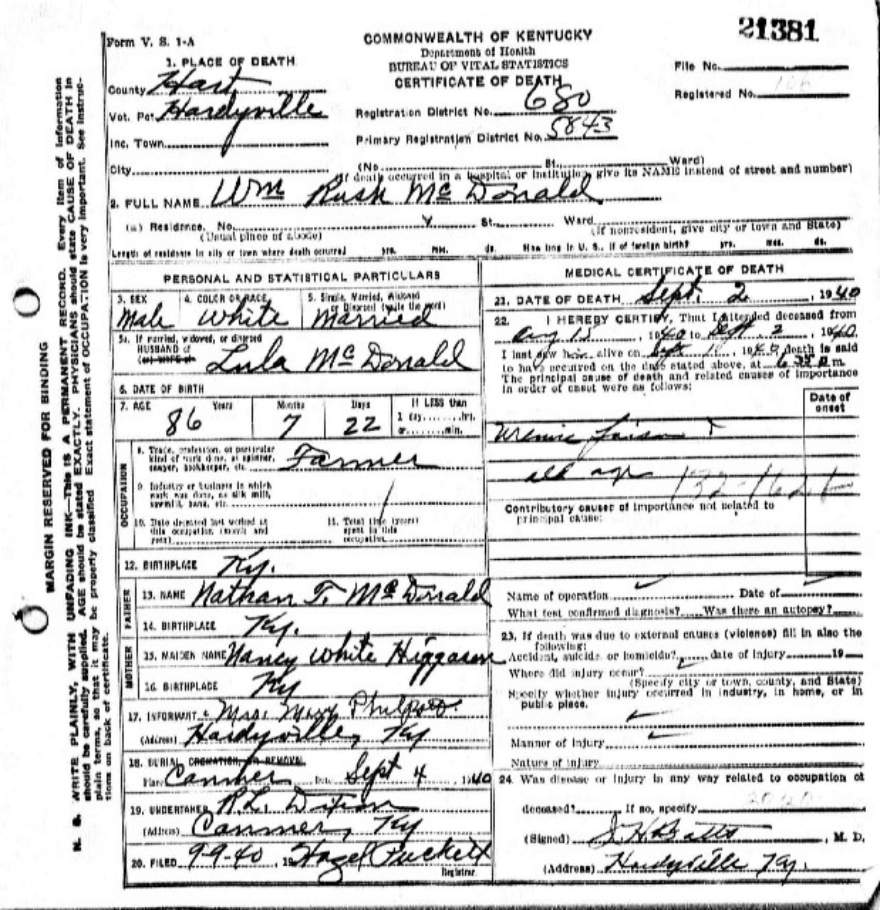 21381
Form V. S. 1-A
COMMONWEALTH OF KENTUCKY
Department of Health
BUREAU OF VITAL STATISTICS
CERTIFICATE OF DEATH
File No.
Registered No.
1. PLACE OF DEATH
County Hart
Vot. Pct Hardyville
Inc. Town
City
Registration District No. 680
Primary Registration District No. 5843
(No. St. Ward)
(If death occurred in a hospital or institution, give its NAME instead of street and number)
2. FULL NAME Wm Rush McDonald
(a) Residence. No. St. Ward
(Usual place of abode) (If nonresident, give city or town and State)
Length of residence in city or town where death occurred yrs. mos. ds. How long in U. S., if of foreign birth? yrs. mos. ds.
PERSONAL AND STATISTICAL PARTICULARS
3. SEX 4. COLOR OR RACE 5. Single, Married, Widowed or Divorced (write the word)
Male White Married
5a. If married, widowed, or divorced
HUSBAND of
(or) WIFE of Lula McDonald
6. DATE OF BIRTH
7. AGE 86 Years 7 Months 22 Days If LESS than
1 day, hrs.
or min.
OCCUPATION
8. Trade, profession, or particular
kind of work done, as spinner,
sawyer, bookkeeper, etc. Farmer
9. Industry or business in which
work was done, as silk mill,
sawmill, bank, etc.
10. Date deceased last worked at
this occupation (month and
year)
11. Total time (years)
spent in this
occupation
12. BIRTHPLACE Ky.
FATHER
13. NAME Nathan T. McDonald
14. BIRTHPLACE Ky.
MOTHER
15. MAIDEN NAME Nancy White Higgason
16. BIRTHPLACE Ky
17. INFORMANT Mrs. Mary Philpott
(Address) Hardyville, Ky
18. BURIAL, CREMATION, OR REMOVAL
Place Canmer Date Sept 4 1940
19. UNDERTAKER R.L. Dixon
(Address) Canmer, Ky
20. FILED 9-9-40 19 Hazel Puckett
Registrar.
MEDICAL CERTIFICATE OF DEATH
21. DATE OF DEATH Sept. 2, 1940
22. I HEREBY CERTIFY, That I attended deceased from
Aug, 1940 to Sept. 2, 1940
I last saw him alive on Sept, 1940 death is said
to have occurred on the date stated above, at m.
The principal cause of death and related causes of importance
in order of onset were as follows:
Date of
onset
Uremic
old age
Contributory causes of importance not related to
principal cause:
Name of operation Date of
What test confirmed diagnosis? Was there an autopsy?
23. If death was due to external causes (violence) fill in also the
following:
Accident, suicide or homicide? date of injury 19
Where did injury occur?
(Specify city or town, county, and State)
Specify whether injury occurred in industry, in home, or in
public place.
Manner of injury
Nature of injury
24. Was disease or injury in any way related to occupation of
deceased? If so, specify
(Signed) , M. D.
(Address) Hardyville Ky.
MARGIN RESERVED FOR BINDING
N. B. WRITE PLAINLY, WITH UNFADING INK—THIS IS A PERMANENT RECORD. Every item of information
should be carefully supplied. AGE should be stated EXACTLY. PHYSICIANS should state CAUSE OF DEATH in
plain terms, so that it may be properly classified. Exact statement of OCCUPATION is very important. See instruc-
tions on back of certificate.